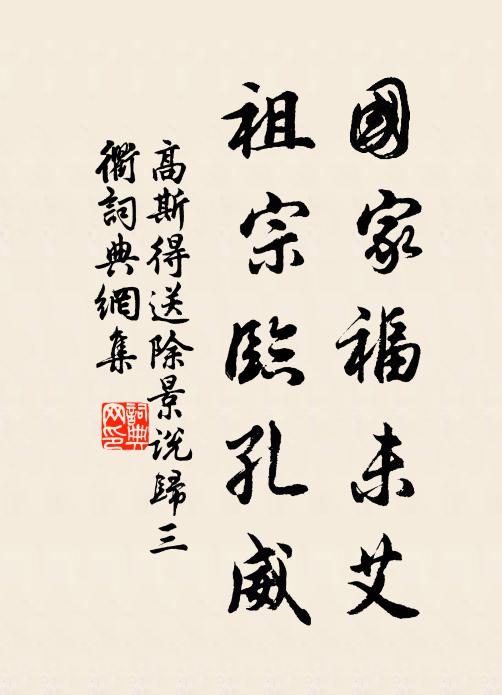 國家福未艾
祖宗臨孔威
高斯得送除景说歸三
衢詞典網集
詞典网印